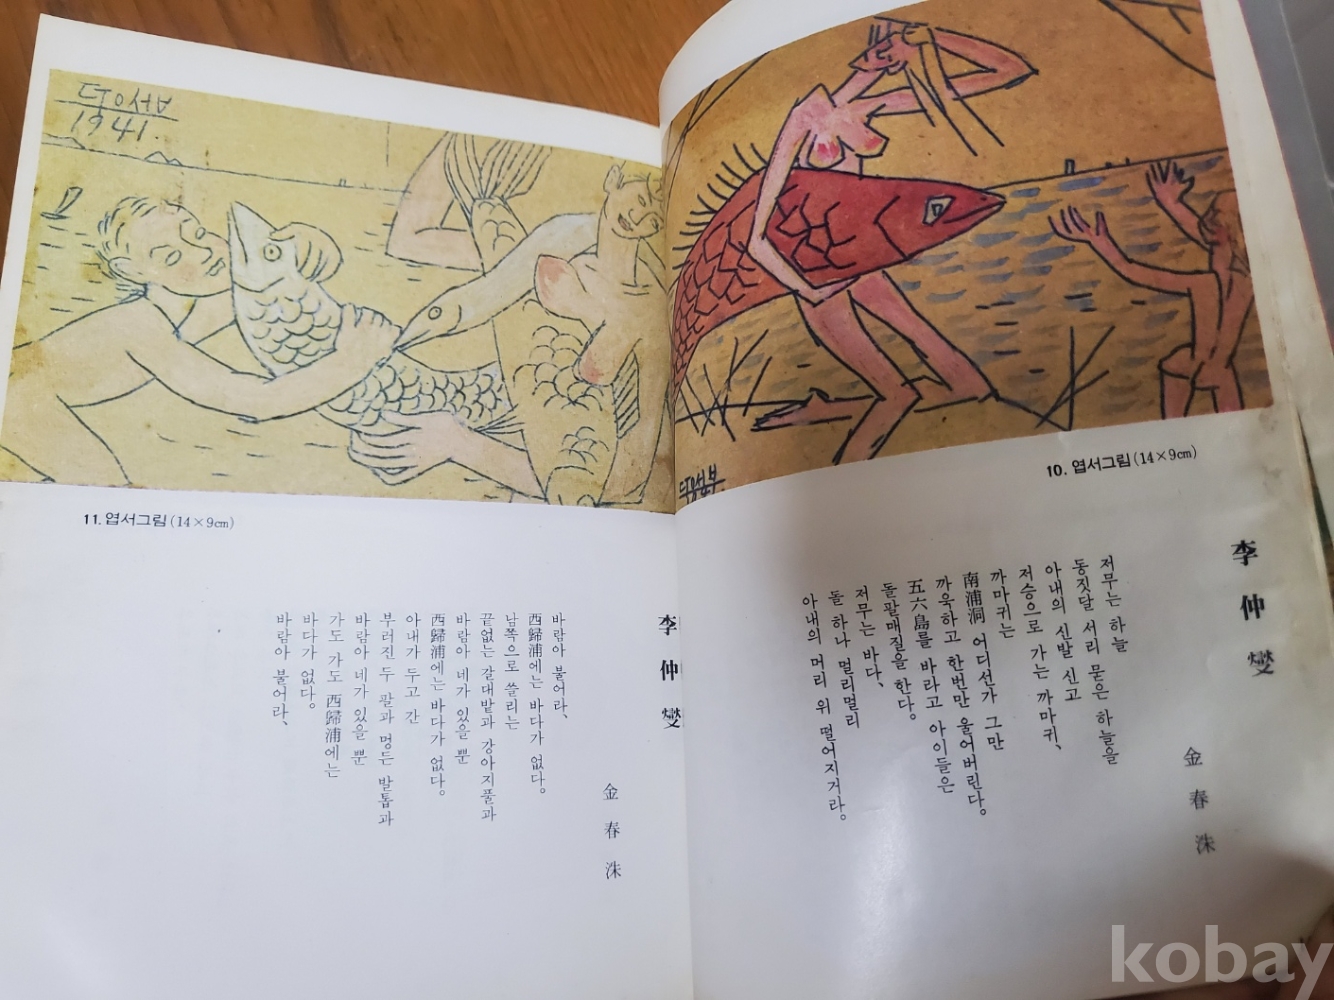 10. 엽서그림(14×9cm)
李仲燮
金春洙
저무는 하늘
동짓달 서리 묻은 하늘을
아내의 신발 신고
저승으로 가는 까마귀,
까마귀는
南浦洞 어디선가 그만
까욱하고 한번만 울어버린다.
五六島를 바라고 아이들은
돌팔매질을 한다.
저무는 바다,
돌 하나 멀리멀리
아내의 머리 위 떨어지거라.
1941.
11. 엽서그림(14×9cm)
李仲燮
金春洙
바람아 불어라,
西歸浦에는 바다가 없다.
남쪽으로 쓸리는
끝없는 갈대밭과 강아지풀과
바람아 네가 있을 뿐
西歸浦에는 바다가 없다.
아내가 두고 간
부러진 두 팔과 멍든 발톱과
바람아 네가 있을 뿐
가도 가도 西歸浦에는
바다가 없다.
바람아 불어라,
kobay